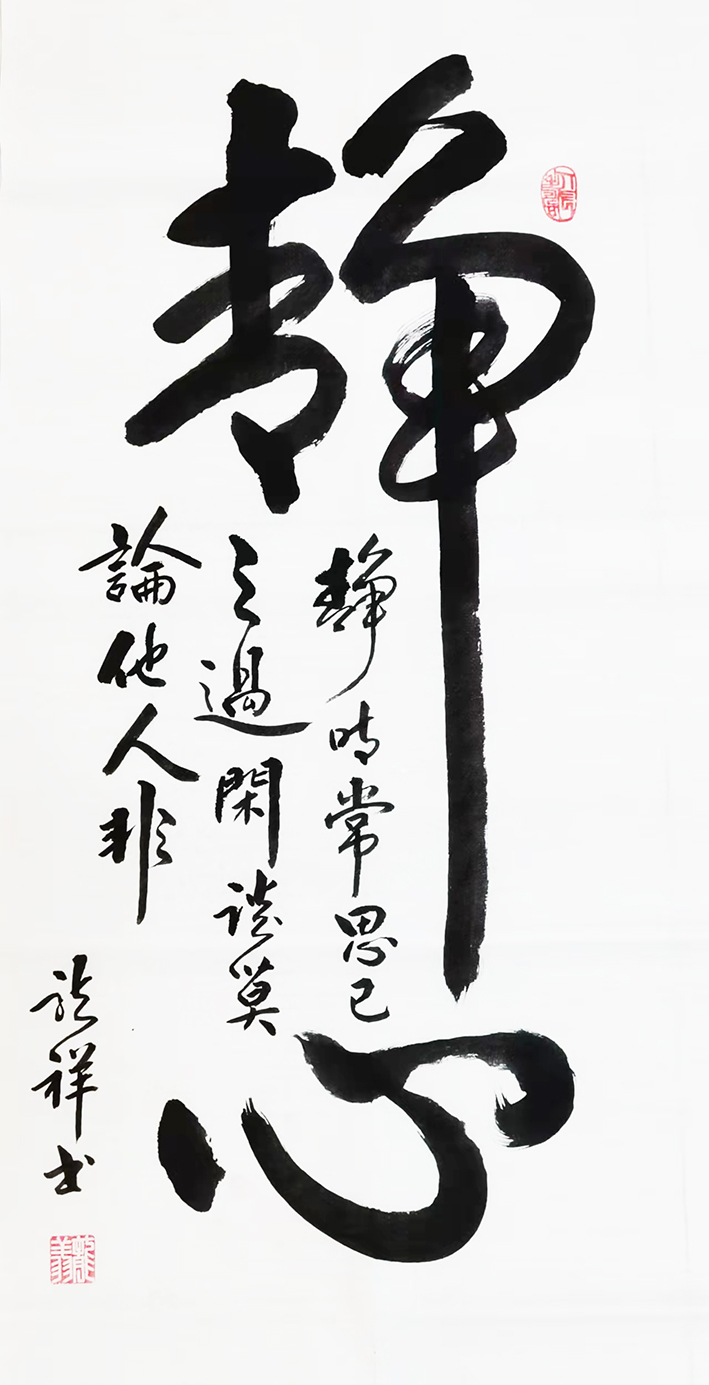 靜心
靜時常思己
之過閑談莫
論他人非
龍祥书